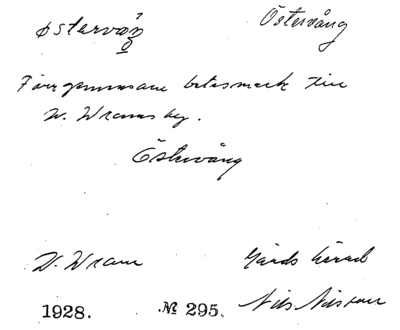 østervåŋ̊ Östervång
Förr gemensam betesmark till
V. Wrams by.
Östervång
V. Wram Gärds härad
1928. № 295. Nils Nilsson